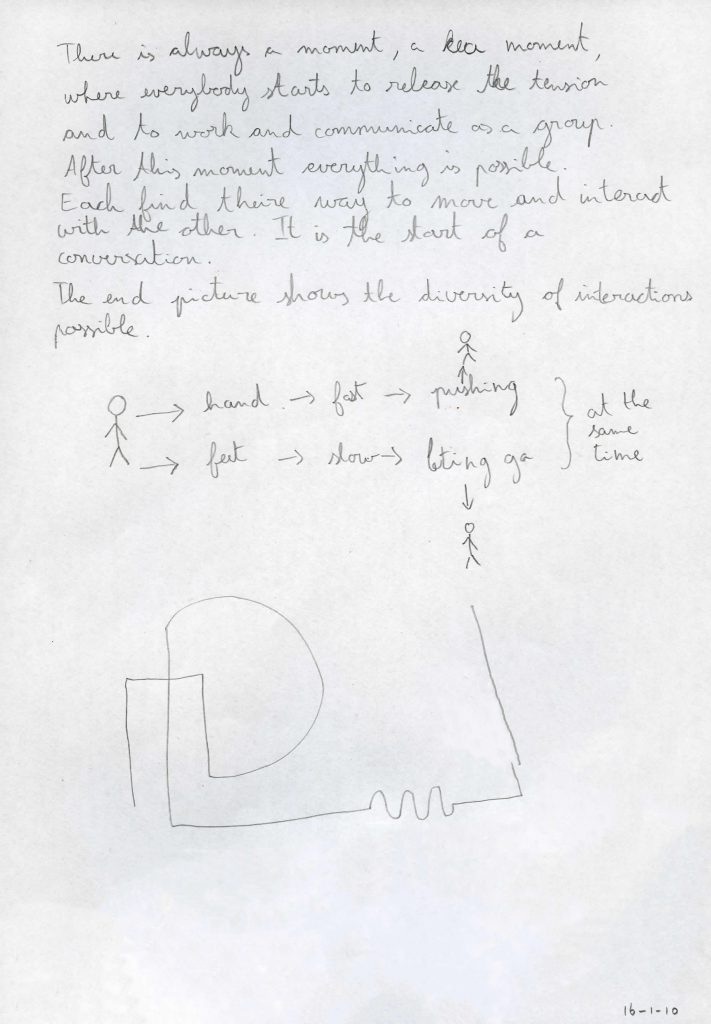 There is always a moment, a kea moment,
where everybody starts to release the tension
and to work and communicate as a group.
After this moment everything is possible.
Each find theire way to move and interact
with the other. It is the start of a
conversation.
The end picture shows the diversity of interactions
possible.
hand → fast → pushing
feet → slow → leting go
at the
same
time
16-1-10